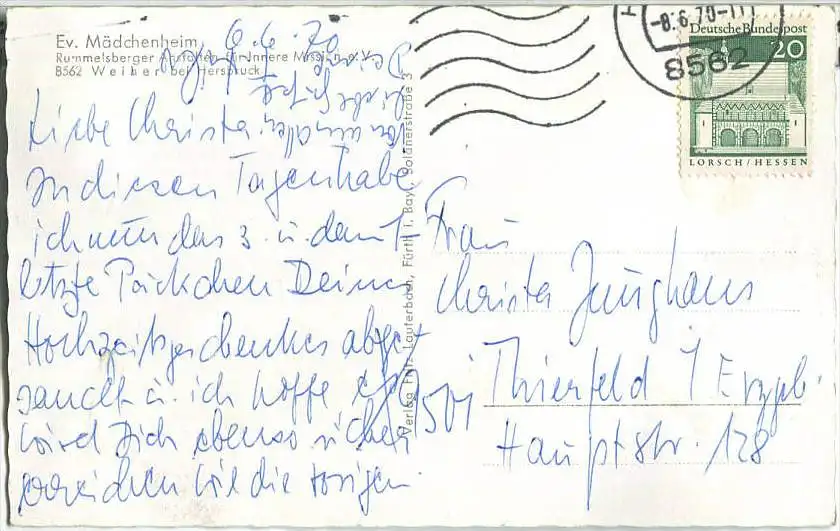 Ev. Mädchenheim
Rummelsberger Anstalten für Innere Mission e. V.
8562 Weiher bei Hersbruck
6.6.70
Liebe Christa!
In diesen Tagen habe
ich nun das 3. u. damit
letzte Päckchen Deines
Hochzeitsgeschenkes abge-
sandt u. ich hoffe es
wird Dich ebenso sicher
erreichen wie die vorigen.
Verlag Fritz Lauterbach, Fürth i. Bay., Soldnerstraße 3
-8.6.70-
8562
Deutsche Bundespost
20
LORSCH/HESSEN
Frau
Christa Junghans
9501 Thierfeld / Erzgeb.
Hauptstr. 128